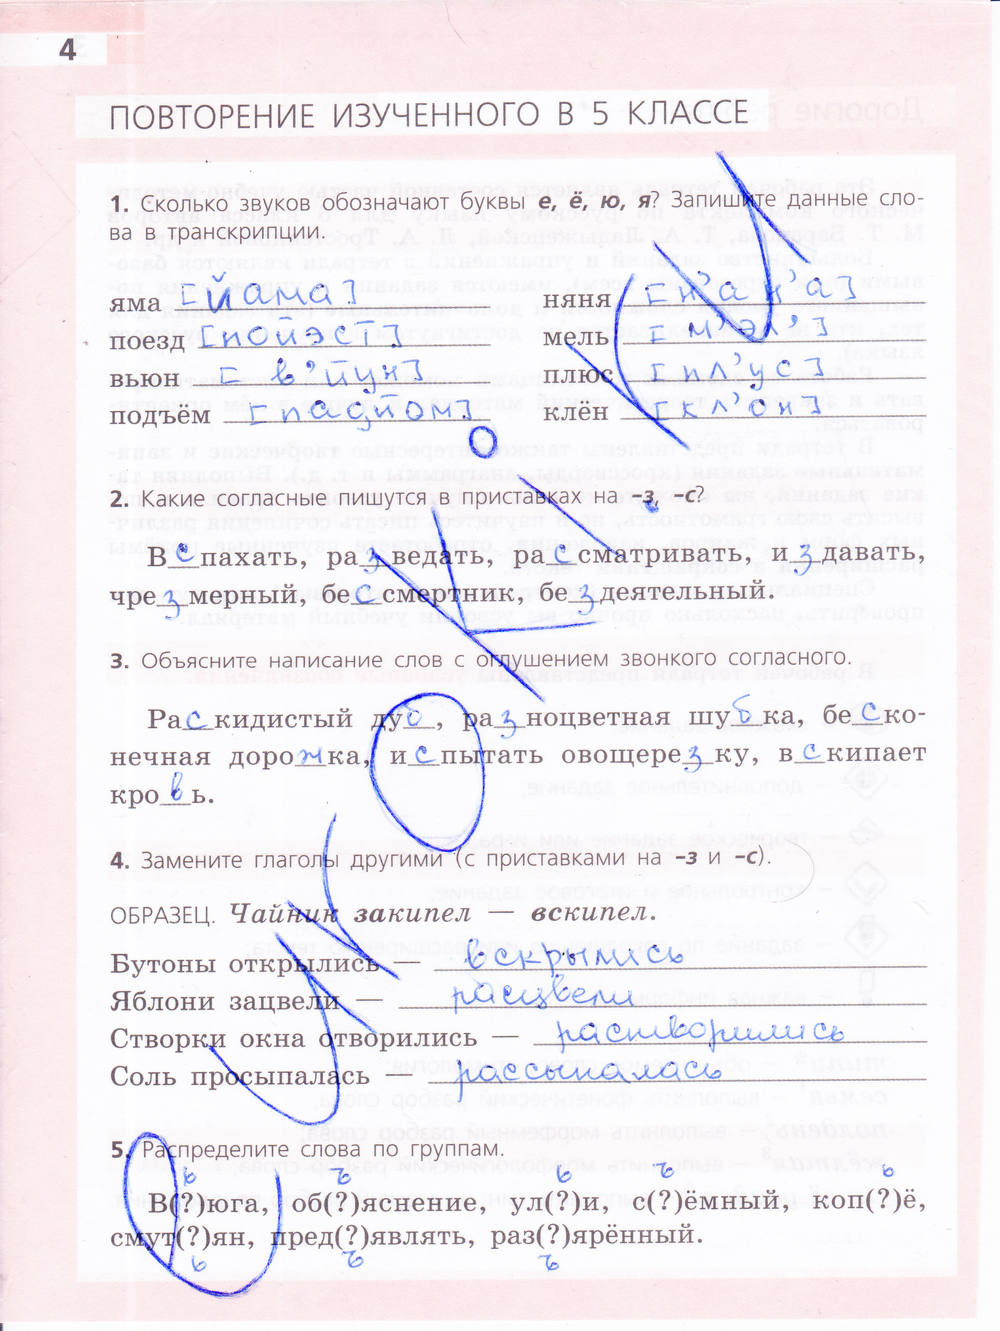 4
ПОВТОРЕНИЕ ИЗУЧЕННОГО В 5 КЛАССЕ
1. Сколько звуков обозначают буквы е, ё, ю, я? Запишите данные сло-
ва в транскрипции.
яма [йама] няня [н'а н'а]
поезд [пойэст] мель [м'эл']
вьюн [в'йун] плюс [пл'ус]
подъём [падйом] клён [кл'он]
2. Какие согласные пишутся в приставках на -з, -с?
В с пахать, ра з ведать, ра с сматривать, и з давать,
чре з мерный, бе с смертник, бе з деятельный.
3. Объясните написание слов с оглушением звонкого согласного.
Ра с кидистый ду б , ра з ноцветная шу б ка, бе с ко-
нечная доро ж ка, и с пытать овощере з ку, в с кипает
кро в ь.
4. Замените глаголы другими (с приставками на -з и -с).
ОБРАЗЕЦ. Чайник закипел — вскипел.
Бутоны открылись — вскрылись
Яблони зацвели — расцвели
Створки окна отворились — растворились
Соль просыпалась — рассыпалась
5. Распределите слова по группам.
ь ъ ь ъ ь
В(?)юга, об(?)яснение, ул(?)и, с(?)ёмный, коп(?)ё,
смут(?)ян, пред(?)являть, раз(?)ярённый.
ь ъ ъ